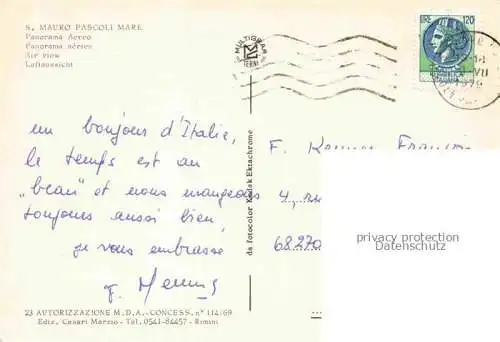 S. MAURO PASCOLI MARE
Panorama Aereo
Panorama aérien
Air view
Luftaussicht
MULTIGRAF
TERNI
LIRE 120
un bonjour d'Italie,
le temps est au
„beau" et nous mangeons
toujours aussi bien,
je vous embrasse
da fotocolor Kodak Ektachrome
F.
4,
68270
privacy protection
Datenschutz
23 AUTORIZZAZIONE M.D.A.-CONCESS. n° 114169
Ediz. Casari Marzio - Tel. 0541-84457 - Rimini